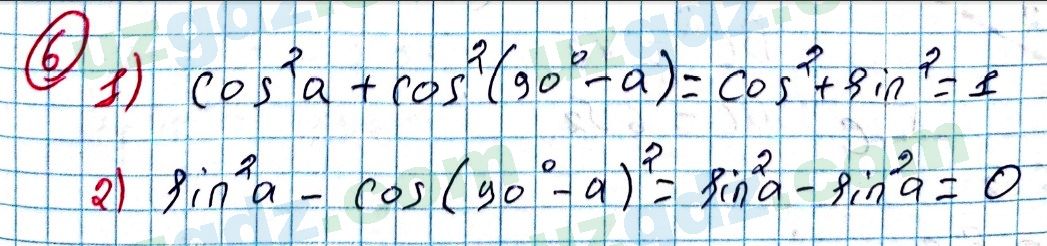 6
1) cos²a + cos²(90° - a) = cos² + sin² = 1
2) sin²a - cos(90° - a)² = sin²a - sin²a = 0
uzgdz.com